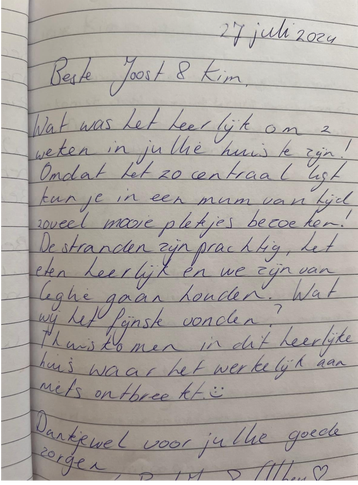 27 juli 2024
Beste Joost & Kim,
Wat was het heerlijk om 2
weken in jullie huis te zijn!
Omdat het zo centraal ligt
kun je in een mum van tijd
zoveel mooie plekjes bezoeken!
De stranden zijn prachtig, het
eten heerlijk en we zijn van
gaan houden. Wat
wij het fijnste vonden?
Thuiskomen in dit heerlijke
huis waar het werkelijk aan
niets ontbreekt ☺
Dankjewel voor jullie goede
zorgen